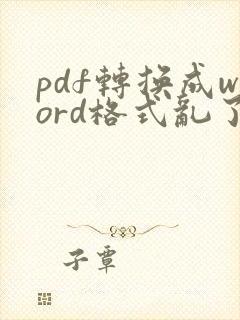 pdf轉換成w
ord格式亂了
子覃